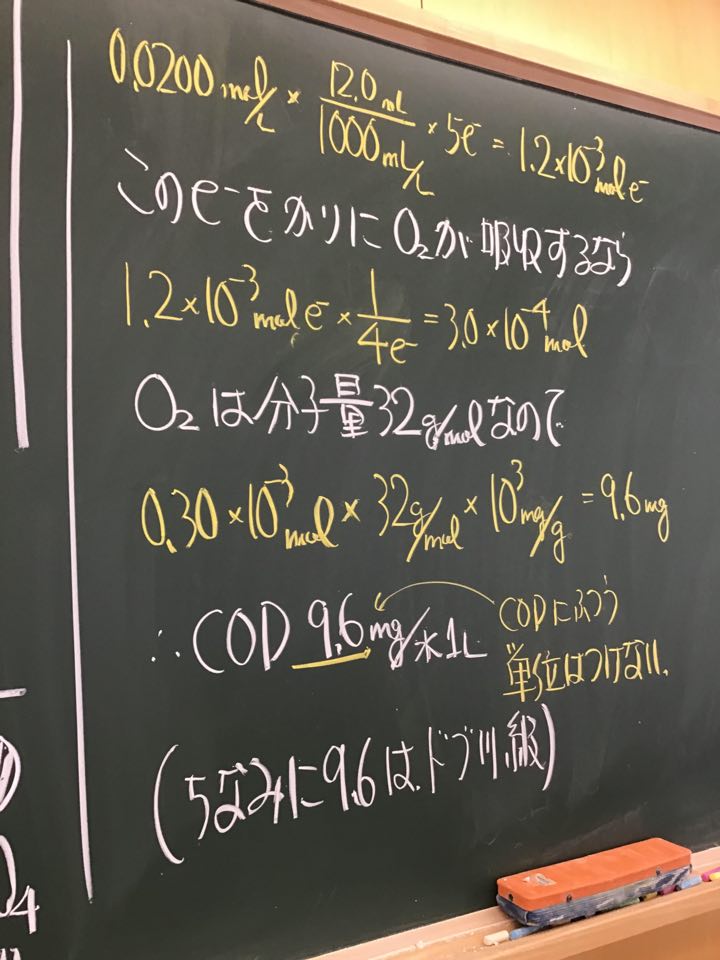 0.0200 mol/L × 12.0 mL/1000 mL/L × 5e⁻ = 1.2×10⁻³ mol e⁻
このe⁻をかりにO₂が吸収するなら
1.2×10⁻³ mol e⁻ × 1/4e⁻ = 3.0×10⁻⁴ mol
O₂は分子量32g/molなので
0.30×10⁻³ mol × 32g/mol × 10³ mg/g = 9.6 mg
∴ COD 9.6 mg/水1L
CODにふつう
単位はつけない.
(ちなみに9.6はドブ川級)
4